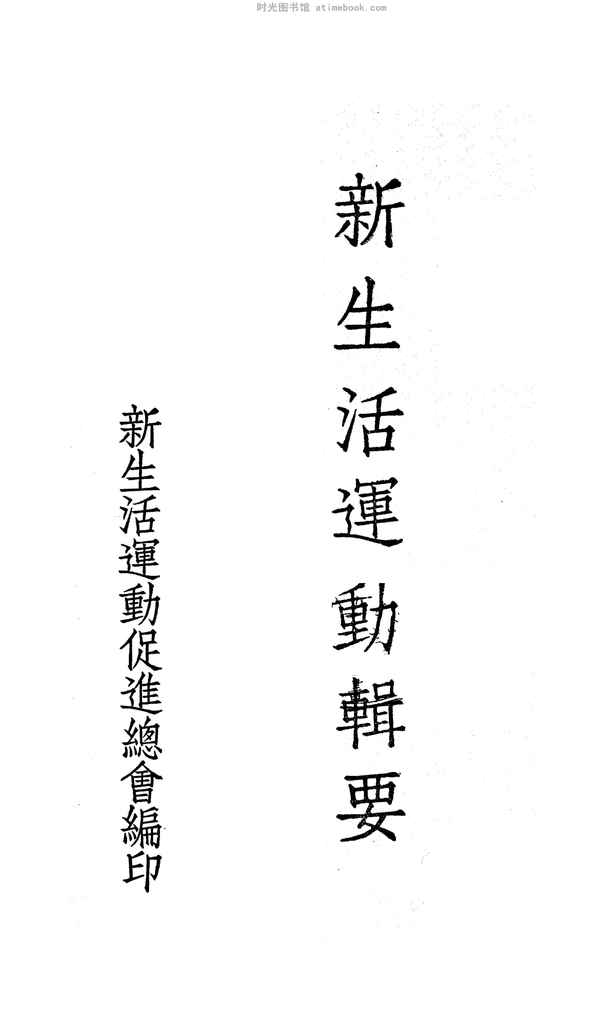 时光图书馆 atimebook.com
新生活運動輯要
新生活運動促進總會編印